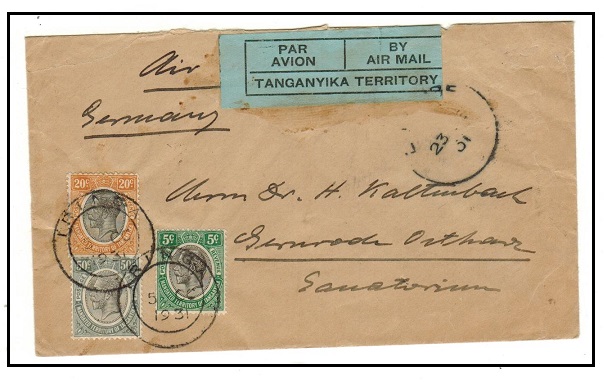 PAR AVION
BY AIR MAIL
TANGANYIKA TERRITORY
Air
Germany
Herrn Dr. H. Kaltenbach
Gernrode Ostharz
Sanatorium
20c 20c
50c 50c
5c 5c
MANDATED TERRITORY OF TANGANYIKA
IRINGA
5
1931
23
31